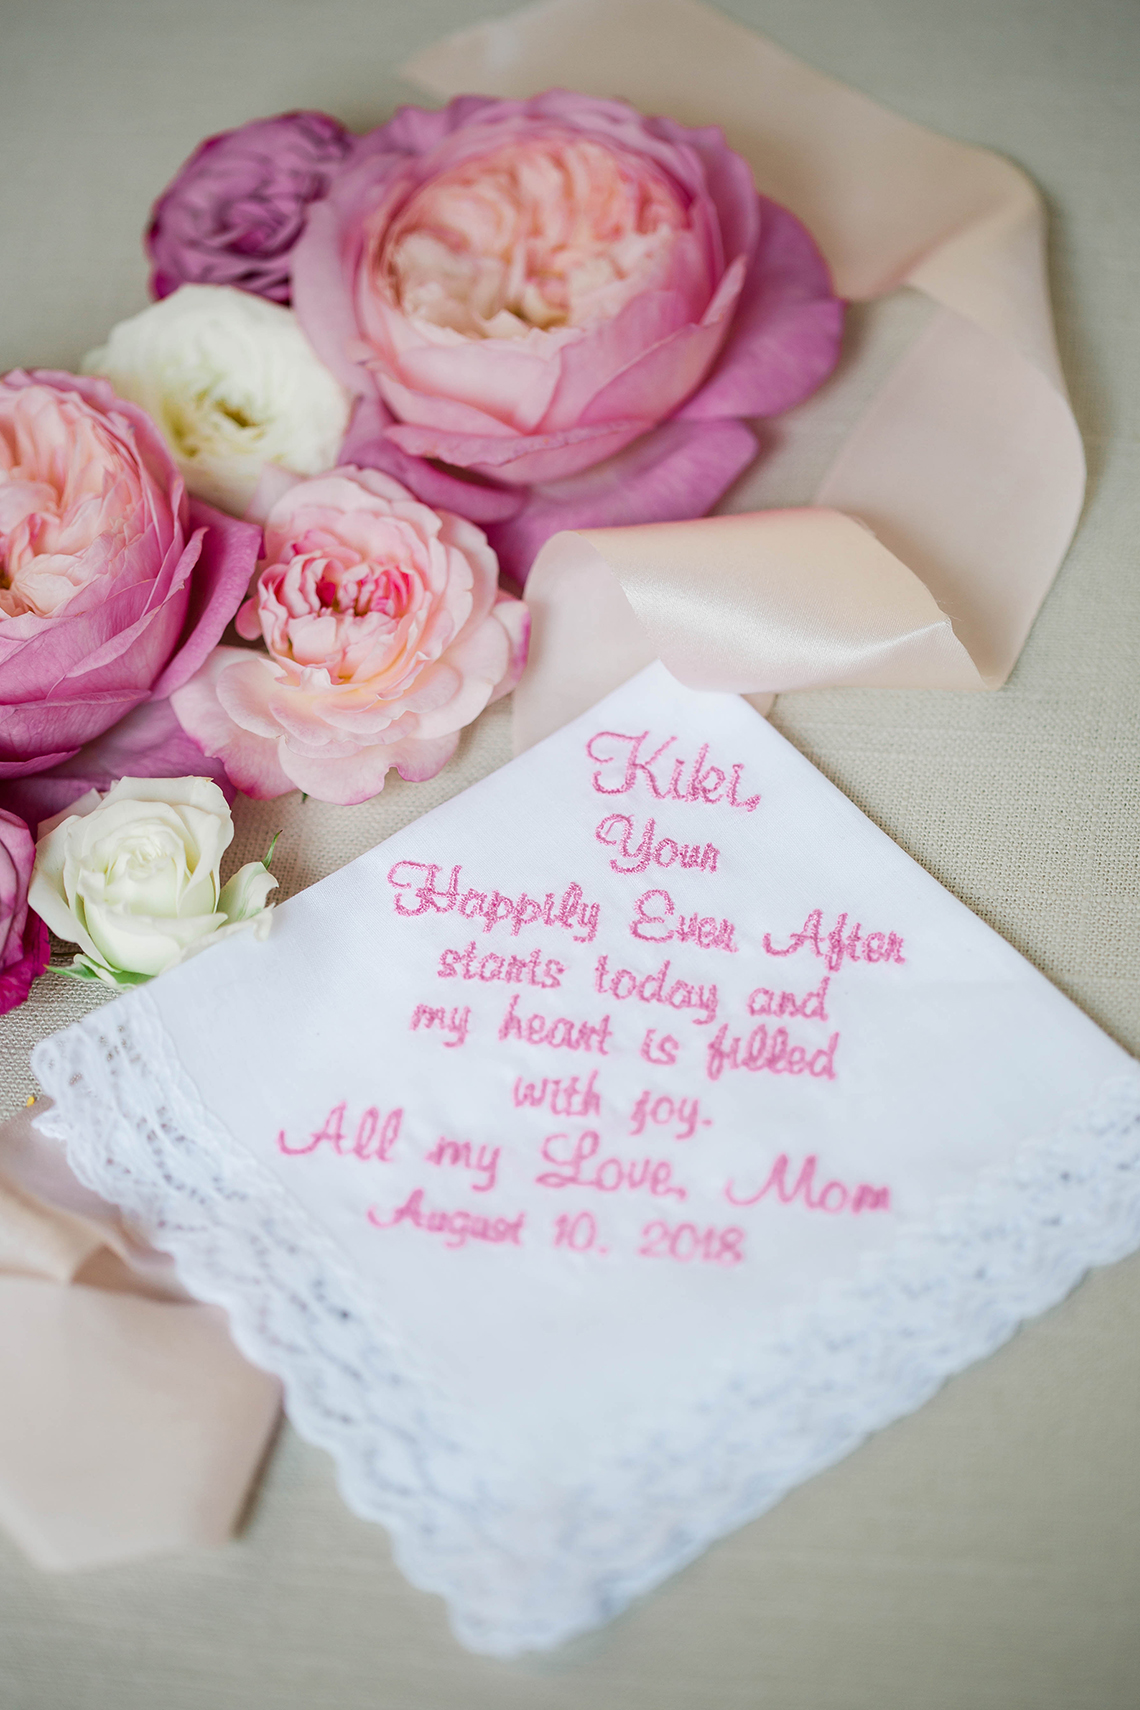 Kiki,
Your
Happily Ever After
starts today and
my heart is filled
with joy.
All my Love, Mom
August 10, 2018